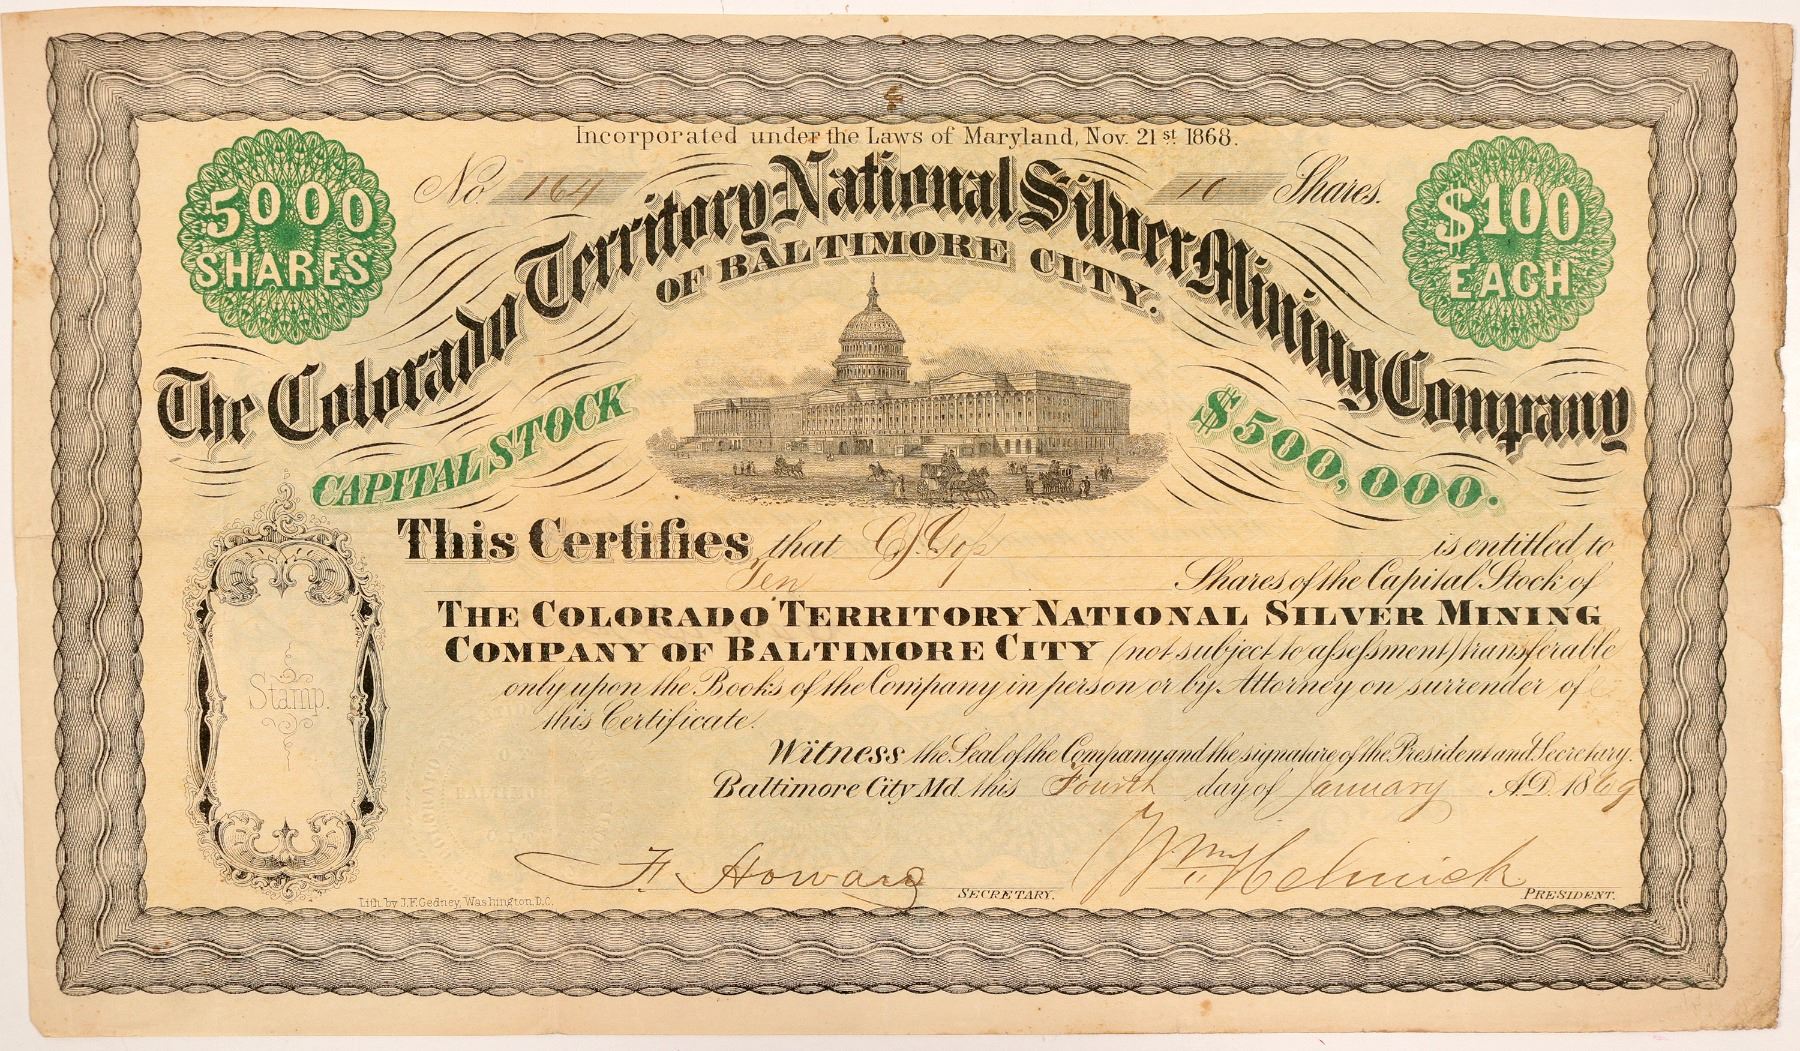 Incorporated under the Laws of Maryland, Nov. 21st 1868.
5000 SHARES
No. 164
10 Shares.
$100 EACH
The Colorado Territory National Silver Mining Company
OF BALTIMORE CITY.
CAPITAL STOCK
$500,000.
This Certifies that C. J. Goſs is entitled to
Ten Shares of the Capital Stock of
THE COLORADO TERRITORY NATIONAL SILVER MINING
COMPANY OF BALTIMORE CITY (not subject to aſseſsment) transferable
only upon the Books of the Company in person or by Attorney on surrender of
this Certificate.
Stamp.
Witness the Seal of the Company and the signature of the President and Secretary.
Baltimore City Md. this Fourth day of January A.D. 1869
F. Howard SECRETARY.
Wm Helmick PRESIDENT.
Lith. by J.F. Gedney, Washington, D.C.